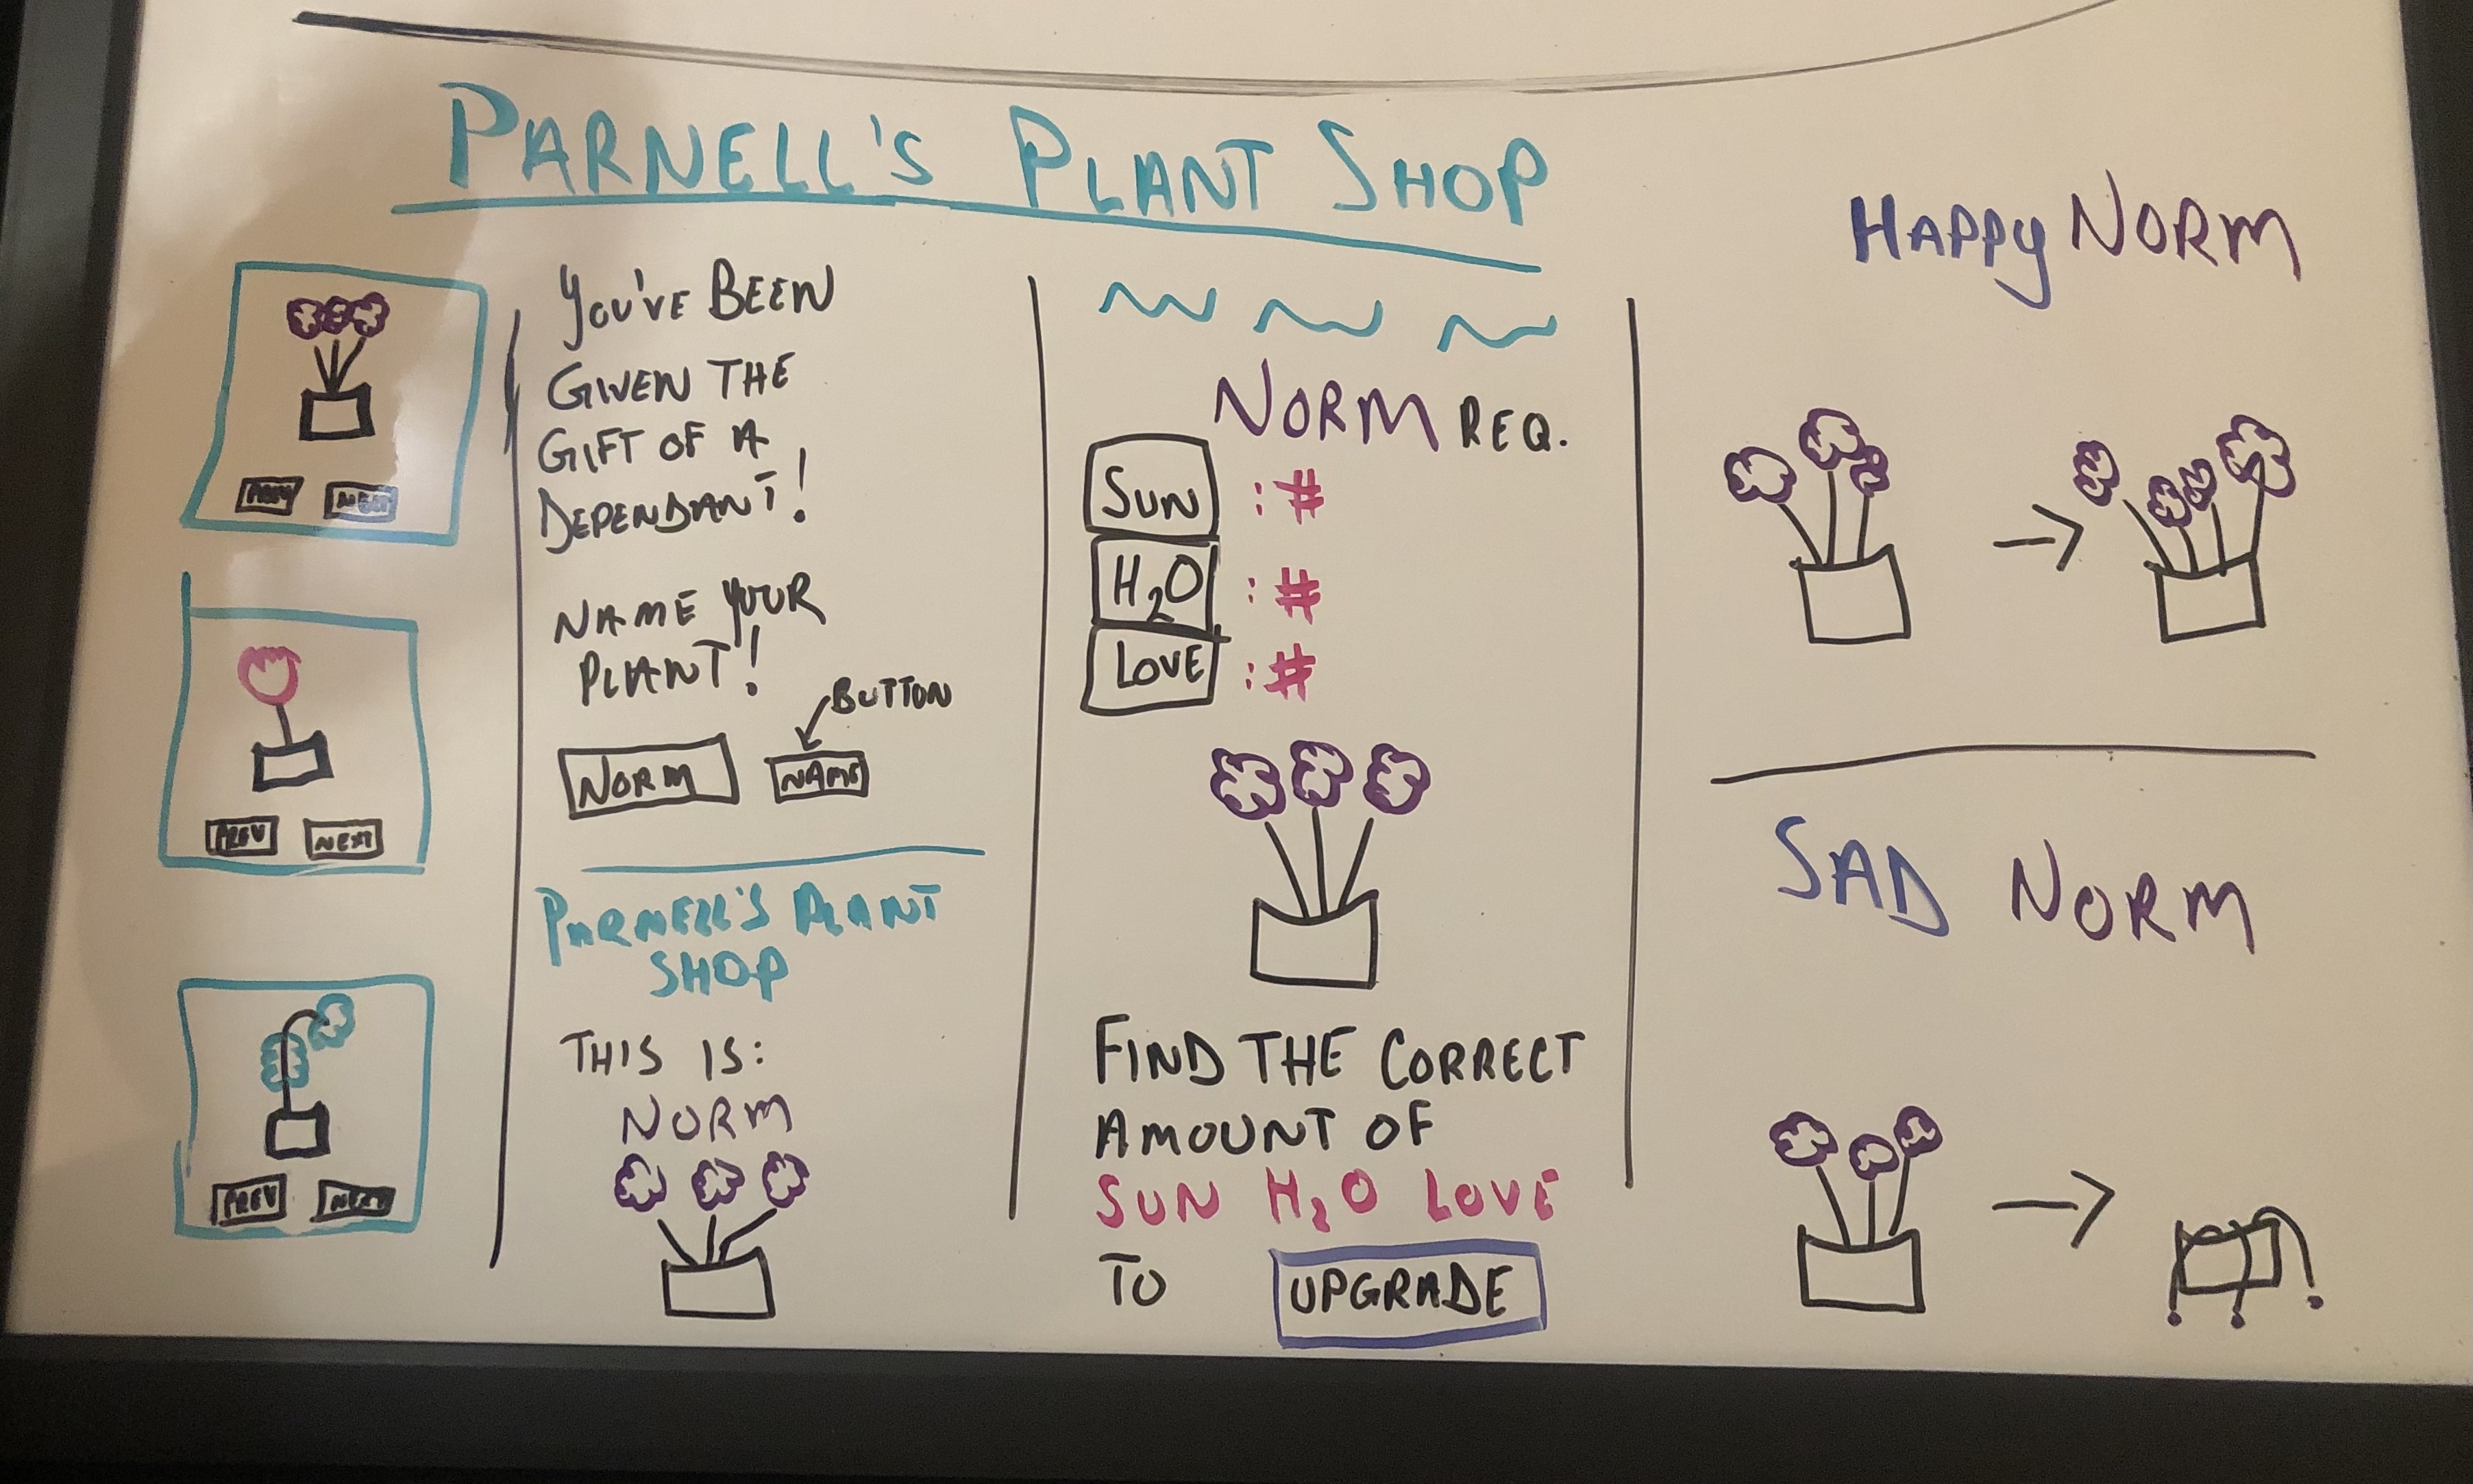 PARNELL'S PLANT SHOP
PREV NEXT
PREV NEXT
PREV NEXT
YOU'VE BEEN
GIVEN THE
GIFT OF A
DEPENDANT!
NAME YOUR
PLANT!
BUTTON
NORM NAME
PARNELL'S PLANT
SHOP
THIS IS:
NORM
NORM REQ.
SUN : #
H₂O : #
LOVE : #
FIND THE CORRECT
AMOUNT OF
SUN H₂O LOVE
TO UPGRADE
HAPPY NORM
SAD NORM